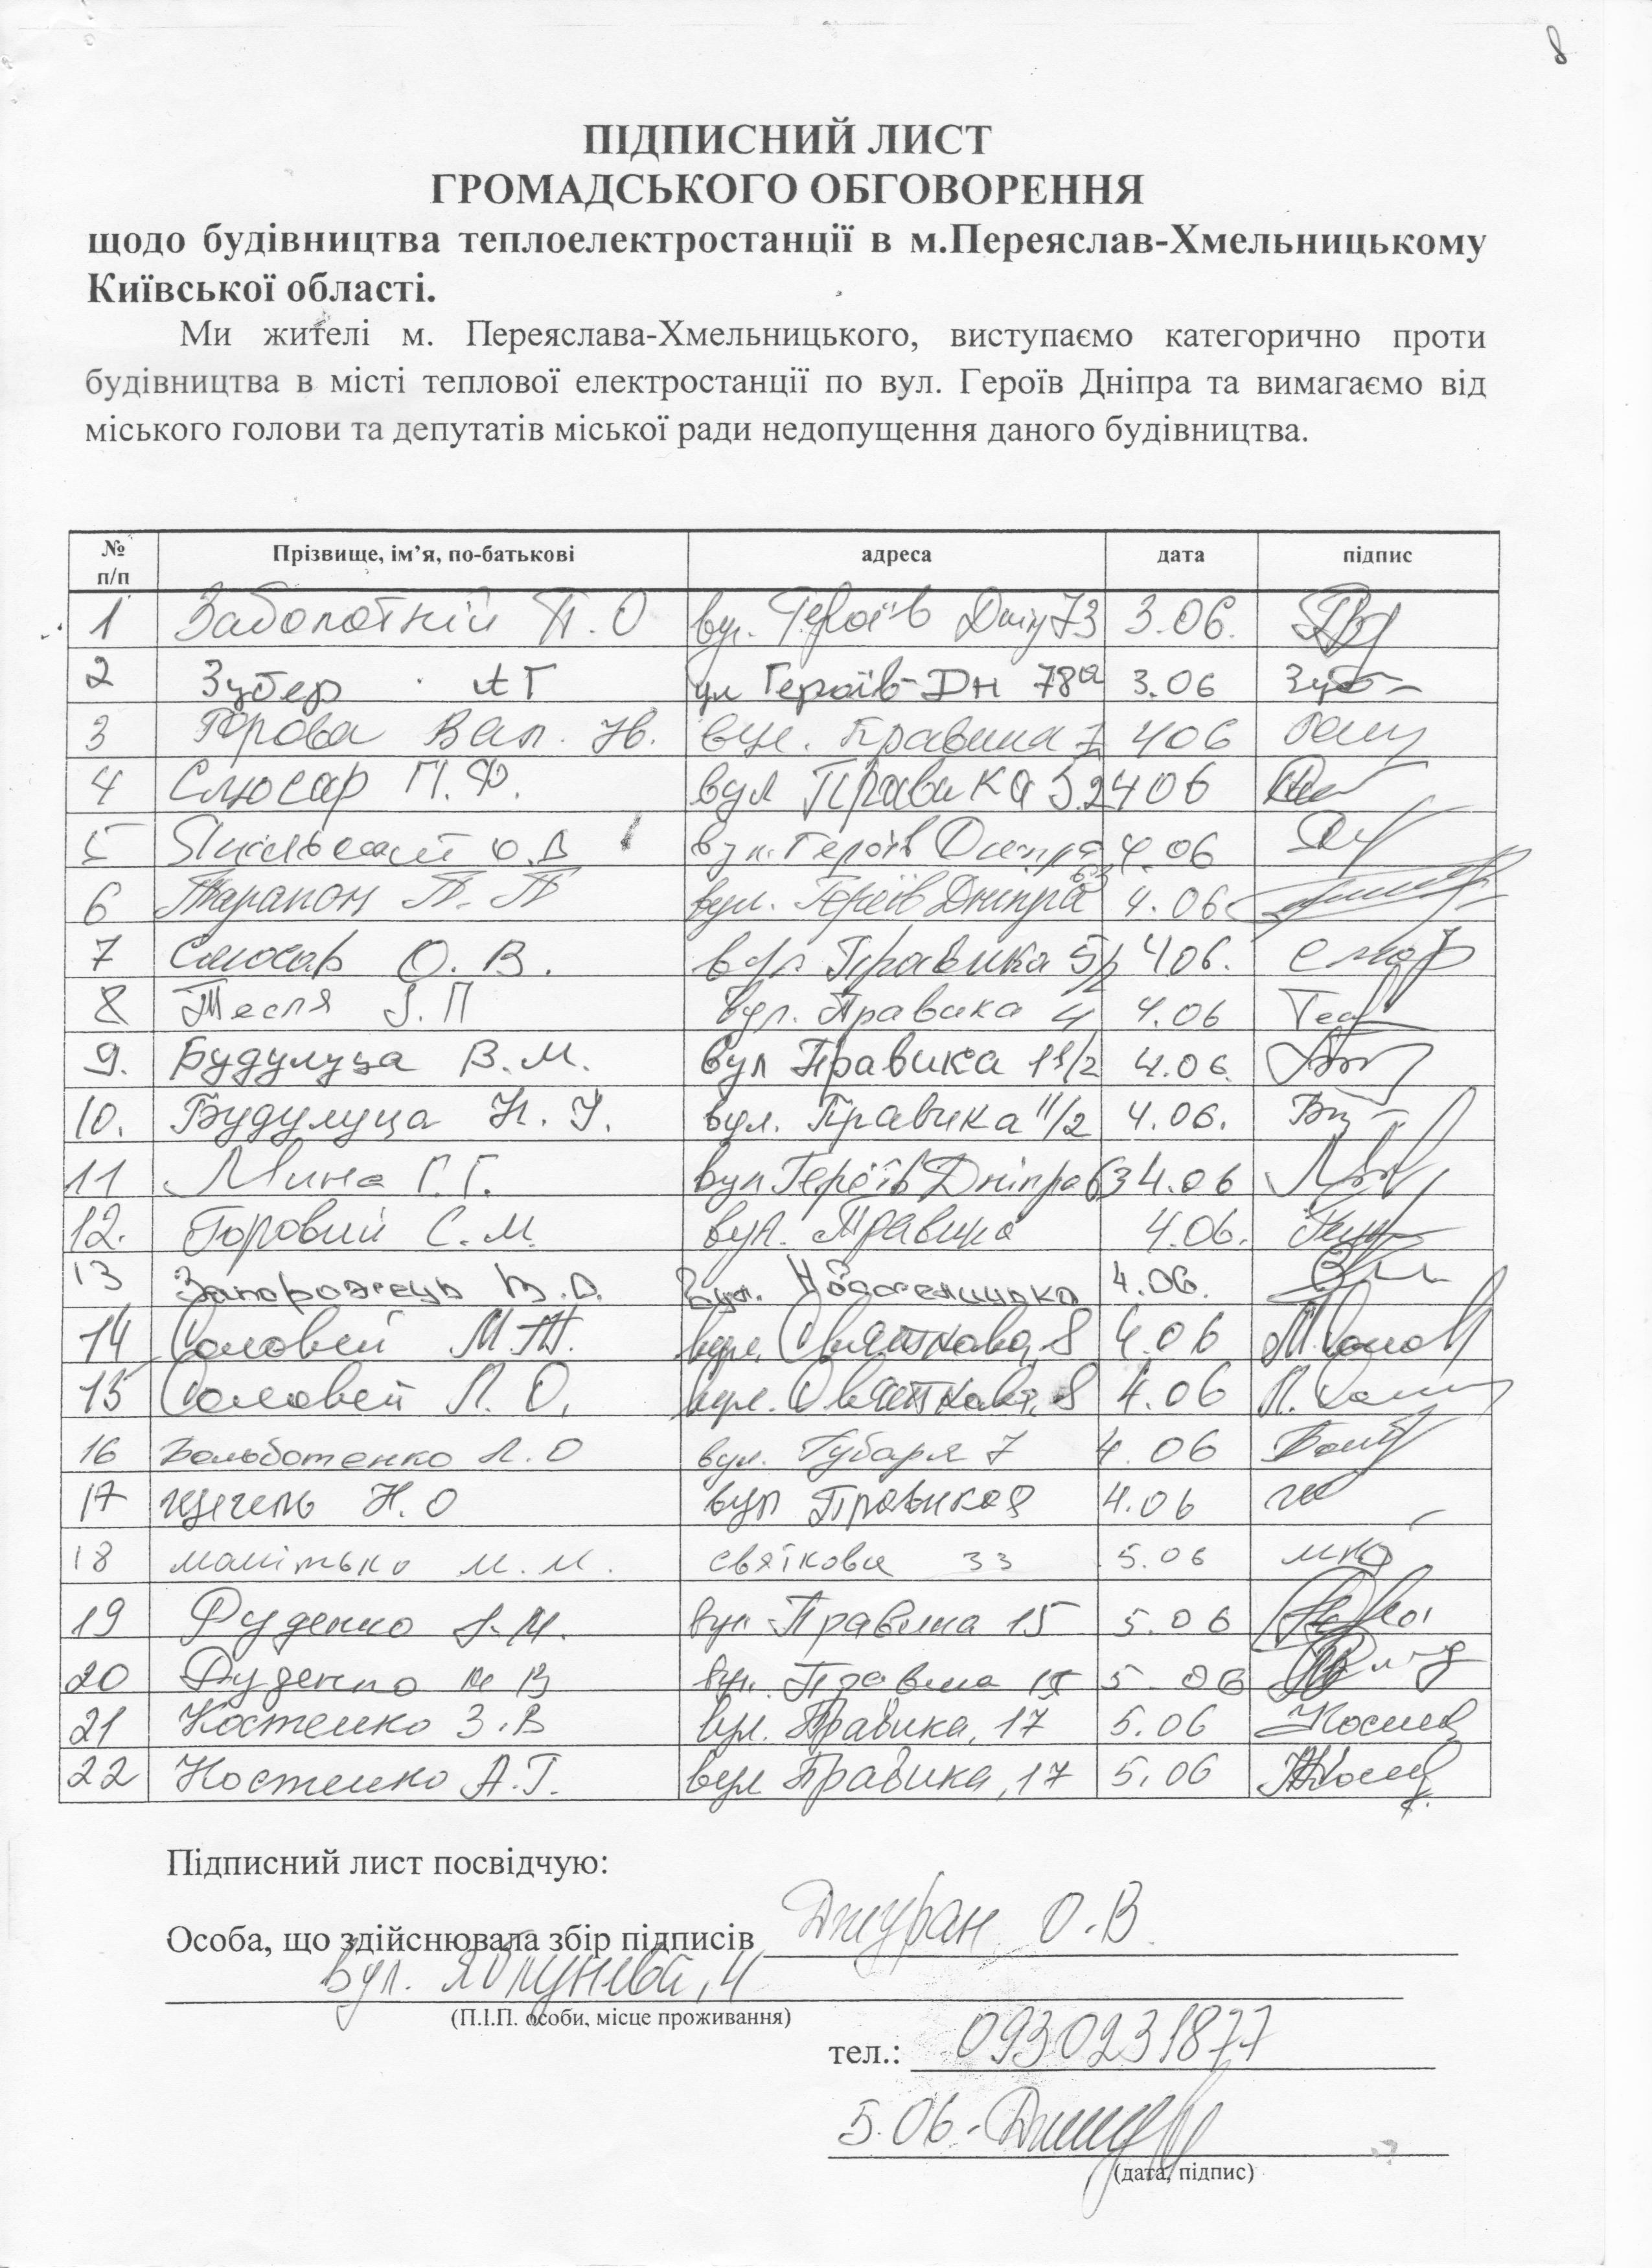 8
ПІДПИСНИЙ ЛИСТ
ГРОМАДСЬКОГО ОБГОВОРЕННЯ
щодо будівництва теплоелектростанції в м.Переяслав-Хмельницькому
Київської області.
Ми жителі м. Переяслава-Хмельницького, виступаємо категорично проти
будівництва в місті теплової електростанції по вул. Героїв Дніпра та вимагаємо від
міського голови та депутатів міської ради недопущення даного будівництва.
№ п/п Прізвище, ім’я, по-батькові адреса дата підпис
1 Заболотній П.О вул. Героїв Дніп 73 3.06.
2 Зубер АГ ул Героїв Дн 78а 3.06
3 Горова Вал. Ів. вул. Правика 7 4 06
4 Слюсар П.Ф. вул Правика 5.2 4 06
5 О.В вул. Героїв Дніпра 4.06
6 Тарапон вул. Героїв Дніпра 4.06
7 Слюсар О.В. вул Правика 5/2 4 06.
8 Тесля І.П вул. Правика 4 4.06
9. Будулуца В.М. вул Правика 11/2 4.06.
10. Будулуца Н.І. вул. Правика 11/2 4.06.
11 Мина Г.Г. вул Героїв Дніпра 63 4.06
12. Горовий С.М. вул. Правика 4.06.
13 Запорожець В.О. вул. 4.06.
14 Соловей М.Т. вул. Святкова, 8 4.06
15 Соловей Л.О. вул. Святкова, 8 4.06
16 Вольботенко Л.О вул. Губаря 7 4.06
17 Н.О вул Правика 8 4.06
18 М.М. святкова 33 5.06
19 Руденко вул. Правика 15 5.06
20 Руденко М В вул. Правика 15 5.06
21 Костенко З.В вул. Правика, 17 5.06
22 Костенко А.Г. вул Правика, 17 5.06
Підписний лист посвідчую:
Особа, що здійснювала збір підписів Джуран О.В
вул. Яблунева, 4
(П.І.П. особи, місце проживання)
тел.: 0930231877
5.06.
(дата, підпис)